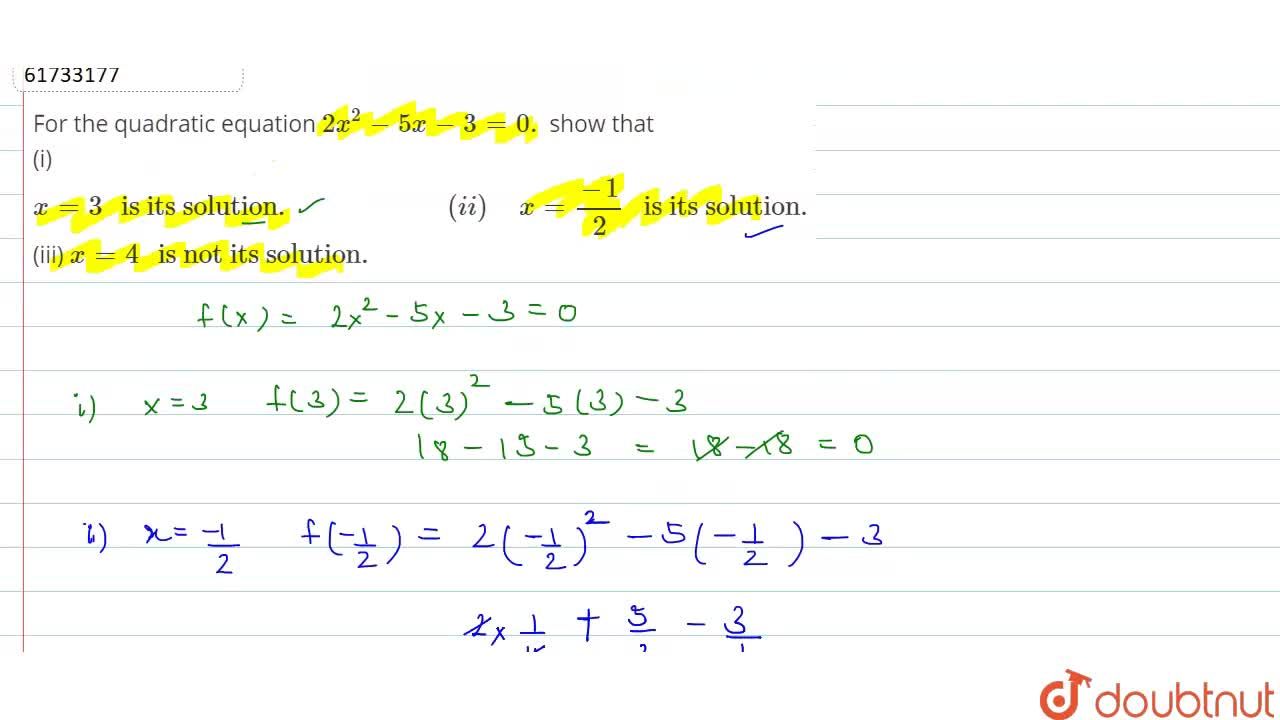 61733177
For the quadratic equation 2x² − 5x − 3 = 0. show that
(i)
x = 3 is its solution. ✓ (ii) x = −1/2 is its solution. ✓
(iii) x = 4 is not its solution.
f(x) = 2x² − 5x − 3 = 0
i) x = 3 f(3) = 2(3)² − 5(3) − 3
18 − 15 − 3 = 18 − 18 = 0
ii) x = −1/2 f(−1/2) = 2(−1/2)² − 5(−1/2) − 3
2 × 1/4 + 5/2 − 3/1
doubtnut